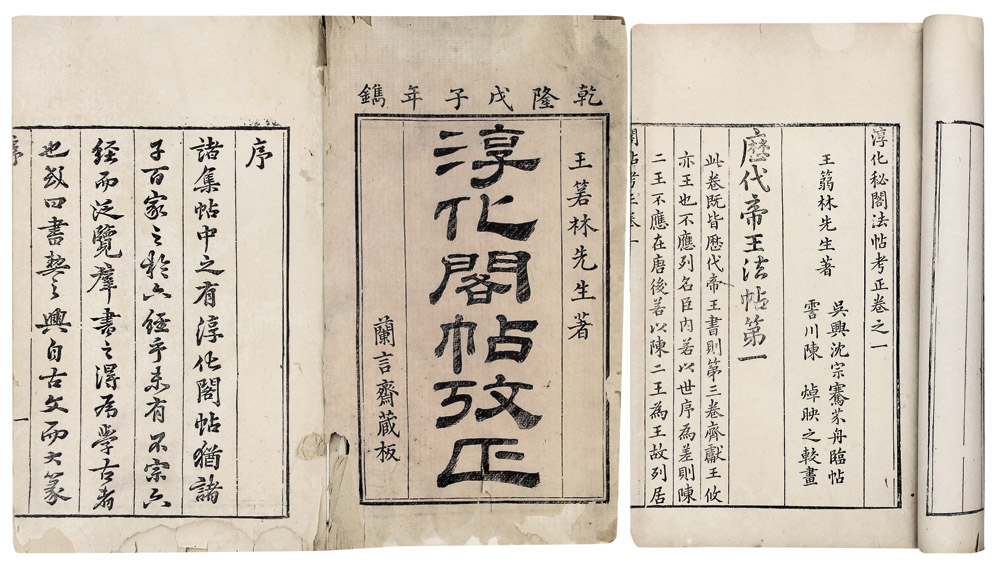 乾隆戊子年鐫
王箬林先生著
淳化閣帖攷正
蘭言齋藏板
序
諸集帖中之有淳化閣帖猶諸
子百家之於六經乎未有不宗六
經而泛覽羣書之得為學古者
也故曰書契之興自古文而大篆
淳化秘閣法帖考正卷之一
王篛林先生著
吳興沈宗騫芥舟臨帖
霅川陳 焯映之較畫
歷代帝王法帖第一
此卷既皆歷代帝王書則第三卷齊獻王攸
亦王也不應列名臣內若以世序為差則陳
二王不應在唐後若以陳二王為王故列居